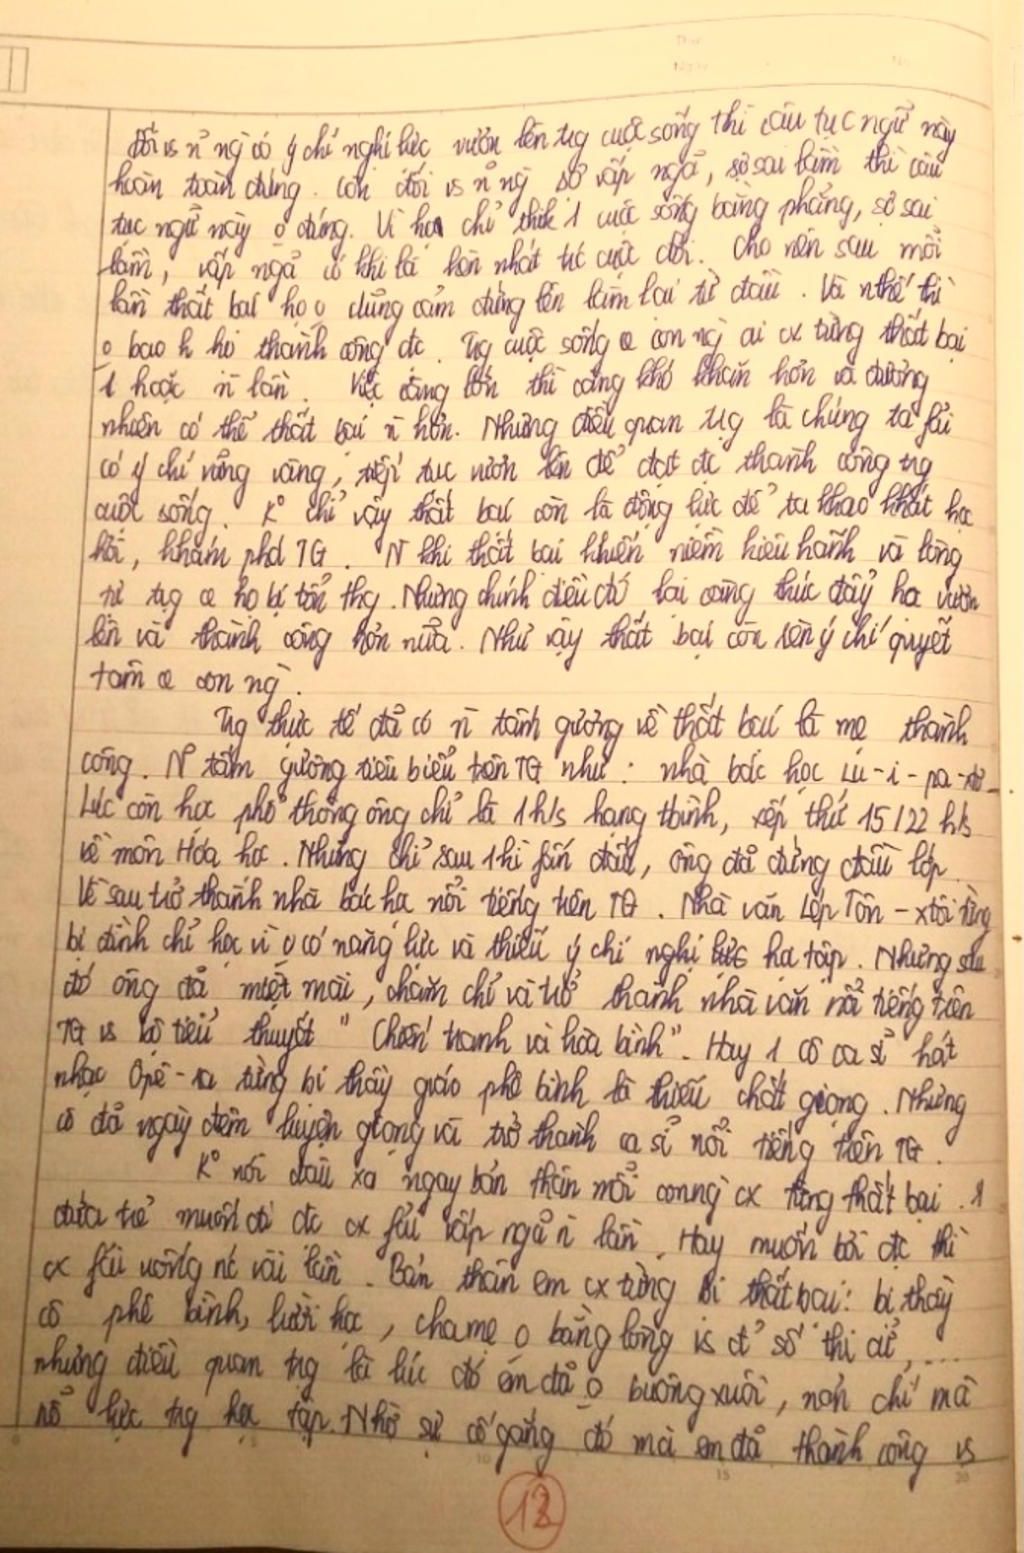 Đối vs n̄ ng̀ có ý chí nghị lực vươn lên tṛg cuộc sống thì câu tục ngữ này
hoàn toàn đúng. Còn đối vs n̄ ng̀ sợ vấp ngã, sợ sai lầm thì câu
tục ngữ này o đúng. Vì họ chỉ thik 1 cuộc sống bằng phẳng, sợ sai
lầm, vấp ngã có khi là hèn nhát từ cuộc đời. Cho nên sau mỗi
lần thất bại họ o dũng cảm đứng lên làm lại từ đầu. Và nthế thì
o bao h họ thành công đc. Tṛg cuộc sống c̉ con ng̀ ai cx từng thất bại
1 hoặc n̄ lần. Việc càng lớn thì càng khó khăn hơn và đương
nhiên có thể thất bại n̄ hơn. Nhưng điều quan tṛg là chúng ta fải
có ý chí vững vàng, tiếp tục vươn lên để đạt đc thành công tṛg
cuộc sống. Ko chỉ vậy thất bại còn là động lực để ta khao khát học
hỏi, khám phá TG. N̄ khi thất bại khiến niềm kiêu hãnh và lòng
tự tṛg c̉ họ bị tổn thg. Nhưng chính điều đó lại càng thúc đẩy họ vươn
lên và thành công hơn nữa. Như vậy thất bại còn rèn ý chí quyết
tâm c̉ con ng̀.
Tṛg thực tế đã có n̄ tấm gương về thất bại là mẹ thành
công. N̄ tấm gương tiêu biểu trên TG như: nhà bác học Lu-i-pa-xtơ
Lúc còn học phổ thông ông chỉ là 1 h/s hạng tbình, xếp thứ 15/22 h/s
về môn Hóa học. Nhưng chỉ sau 1 hì fấn đấu, ông đã đứng đầu lớp.
Về sau trở thành nhà bác học nổi tiếng trên TG. Nhà văn Lép Tôn-xtôi từng
bị đình chỉ học vì o có năng lực và thiếu ý chí nghị lực học tập. Nhưng sau
đó ông đã miệt mài, chăm chỉ và trở thành nhà văn nổi tiếng trên
TG vs bộ tiểu thuyết "Chiến tranh và hòa bình". Hay 1 cô ca sĩ hát
nhạc Ôpê-ra từng bị thầy giáo phê bình là thiếu chất giọng. Nhưng
cô đã ngày đêm luyện giọng và trở thành ca sĩ nổi tiếng trên TG.
Ko nói đâu xa ngay bản thân mỗi con ng̀ cx từng thất bại. 1
đứa trẻ muốn đi đc cx fải vấp ngã n̄ lần. Hay muốn bơi đc thì
cx fải uống nc vài lần. Bản thân em cx từng bị thất bại: bị thầy
cô phê bình, lười học, cha mẹ o bằng lòng vs đ' số thi cử,...
nhưng điều quan tṛg là lúc đó em đã o buông xuôi, nản chí mà
nỗ lực tṛg học tập. Nhờ sự cố gắng đó mà em đã thành công vs
12